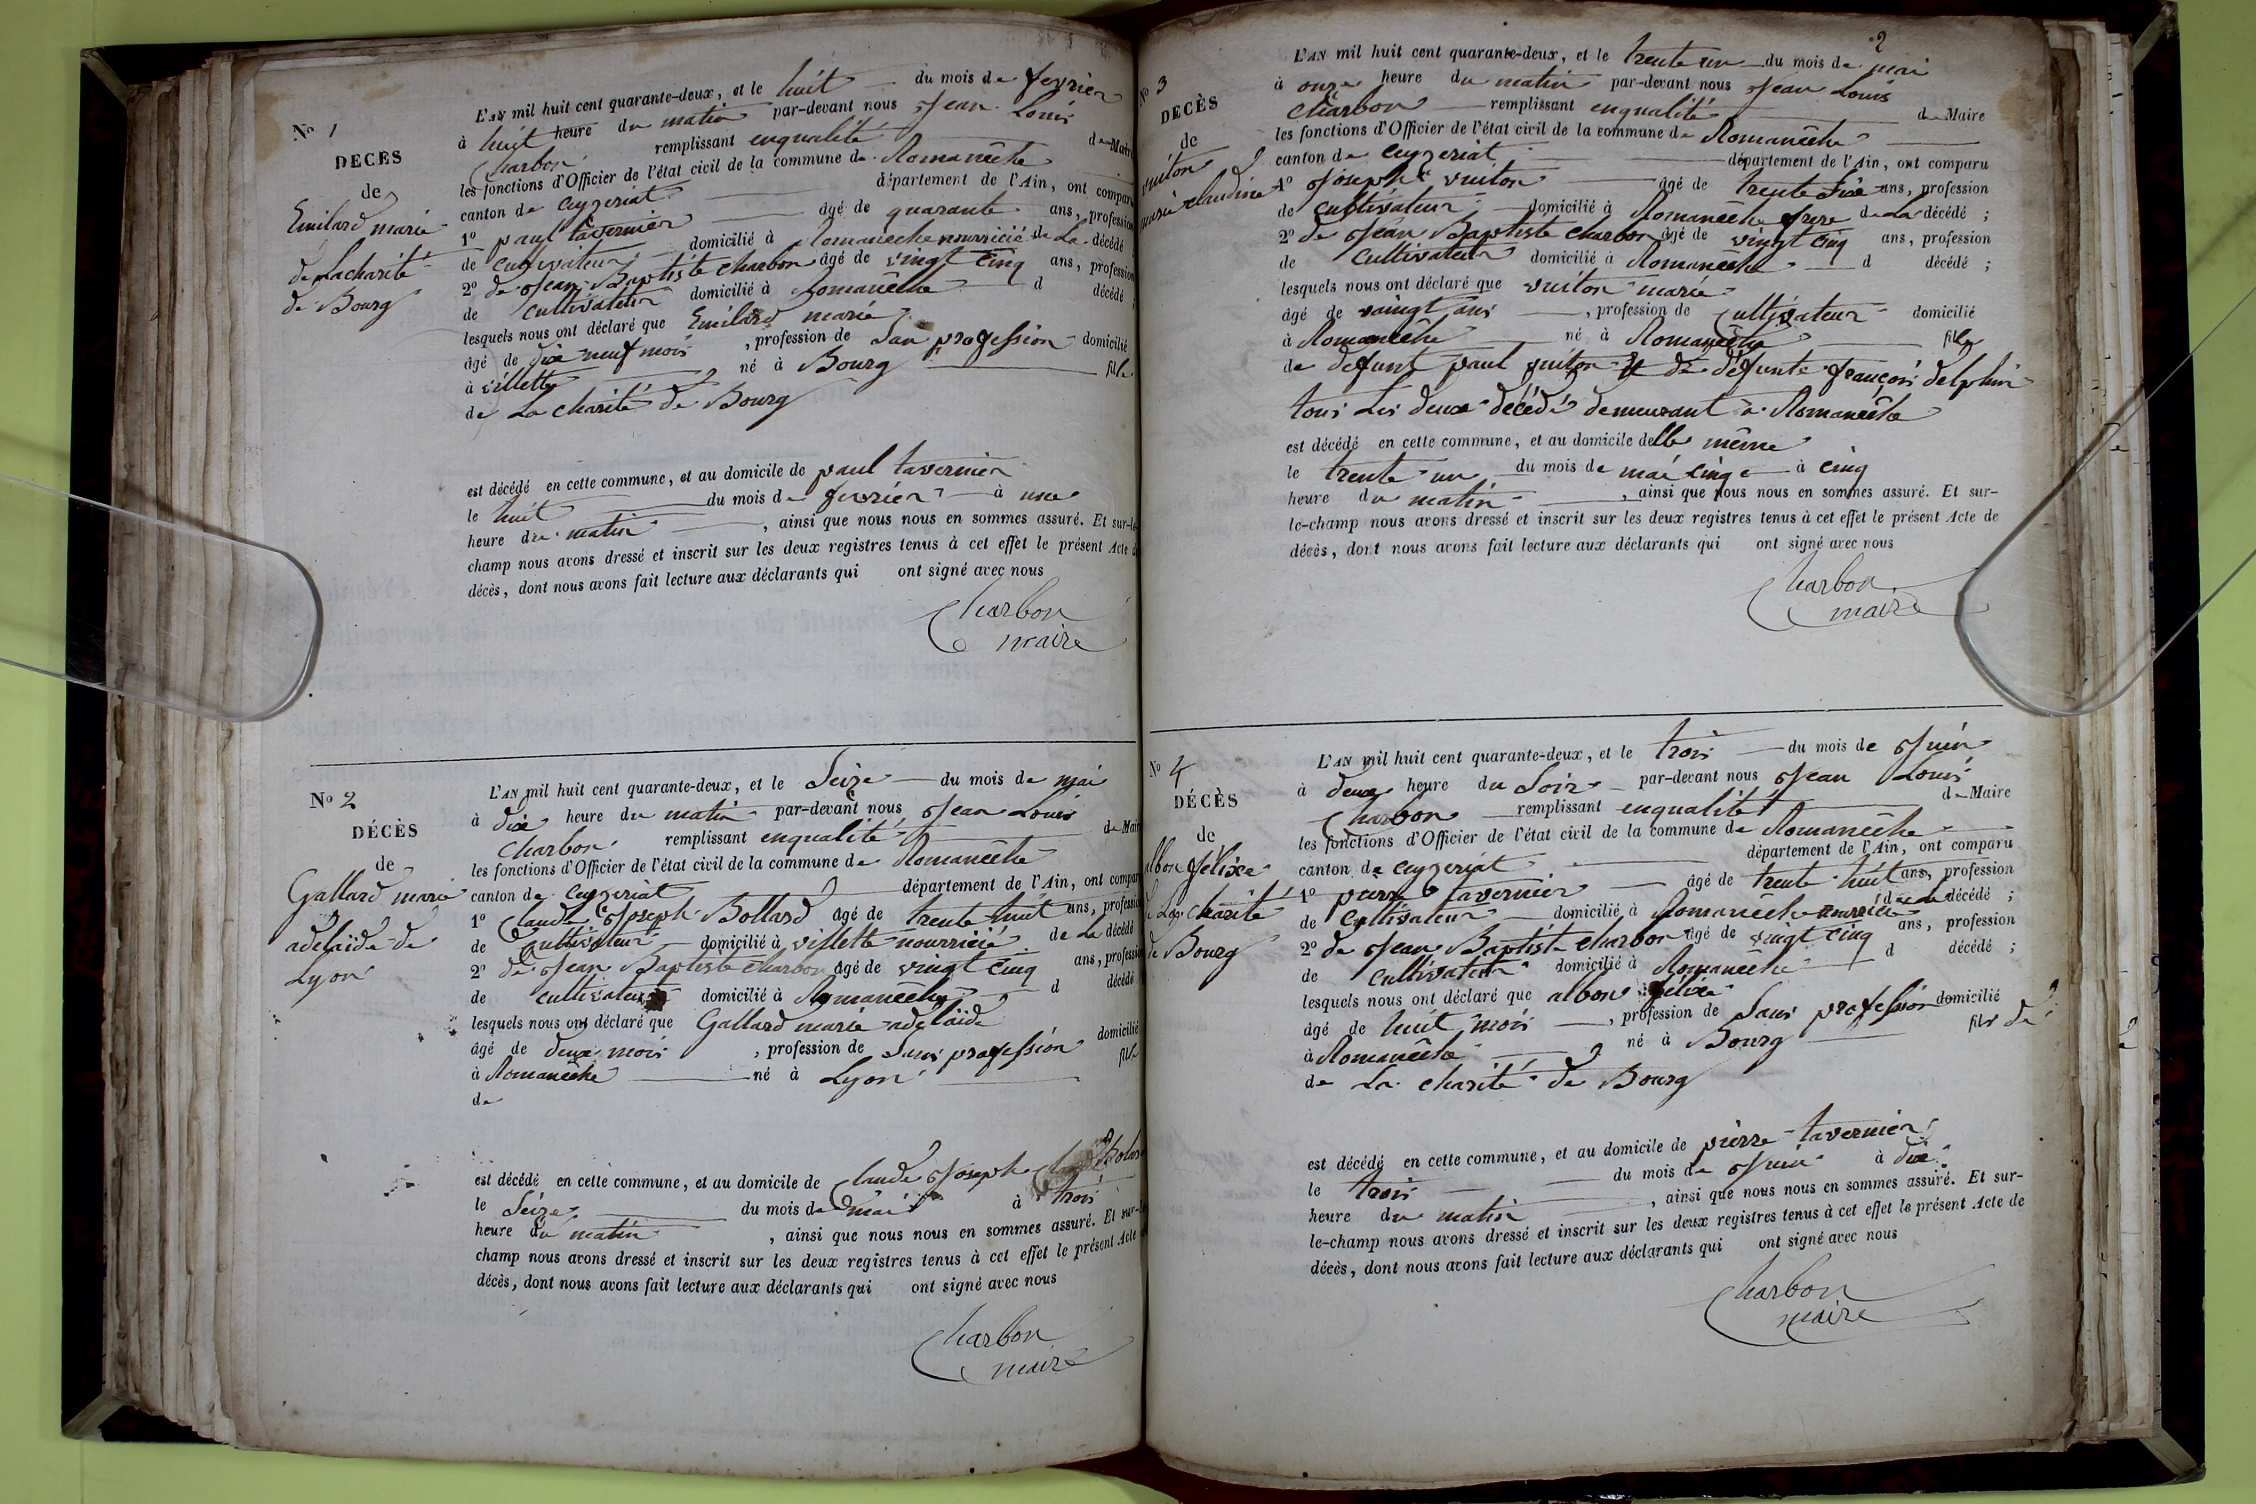 No 1
DECES
de
Emilard marie
de La charité
de Bourg
L'AN mil huit cent quarante-deux, et le huit du mois de fevrier
à huit heure du matin par-devant nous Jean Louis
Charbon remplissant enqualité de Maire
les fonctions d'Officier de l'état civil de la commune de Romanêche
canton de Ceyzeriat département de l'Ain, ont comparu
1º paul tavernier âgé de quarante ans, profession
de cultivateur domicilié à Romaneche nourricié de La décédé
2º de Jean Baptiste charbon âgé de vingt cinq ans, profession
de cultivateur domicilié à Romanêche d décédé ;
lesquels nous ont déclaré que Emilard marie
âgé de dix neuf mois , profession de San profession domicilié
à villette né à Bourg file
de La charité de Bourg
est décédé en cette commune, et au domicile de paul tavernier
le huit du mois de fevrier à une
heure du matin , ainsi que nous nous en sommes assuré. Et sur-le-
champ nous avons dressé et inscrit sur les deux registres tenus à cet effet le présent Acte de
décès, dont nous avons fait lecture aux déclarants qui ont signé avec nous
Charbon
maire
No 2
DÉCÈS
de
Gallard marie
adelaïde de
Lyon
L'AN mil huit cent quarante-deux, et le Seize du mois de mai
à dix heure du matin par-devant nous Jean Louis
Charbon remplissant enqualité de Maire
les fonctions d'Officier de l'état civil de la commune de Romanêche
canton de Ceyzeriat département de l'Ain, ont comparu
1º Claude Joseph Bollard âgé de trente huit ans, profession
de Cultivateur domicilié à villette nourricié de La décédé
2º de Jean Baptiste charbon âgé de vingt cinq ans, profession
de cultivateur domicilié à Romanêche d décédé
lesquels nous ont déclaré que Gallard marie adélaïde
âgé de deux mois , profession de Sans profession domicilié
à Romanêche né à Lyon file
de
est décédé en cette commune, et au domicile de Claude Joseph
le Seize du mois de mai à trois
heure du matin , ainsi que nous nous en sommes assuré. Et sur-le-
champ nous avons dressé et inscrit sur les deux registres tenus à cet effet le présent Acte
décès, dont nous avons fait lecture aux déclarants qui ont signé avec nous
Charbon
maire
2
No 3
DÉCÈS
de
vuiton
marie claudine
L'AN mil huit cent quarante-deux, et le trente un du mois de mai
à onze heure du matin par-devant nous Jean Louis
Charbon remplissant enqualité de Maire
les fonctions d'Officier de l'état civil de la commune de Romanêche
canton de Ceyzeriat département de l'Ain, ont comparu
1º Joseph vuiton âgé de trente six ans, profession
de cultivateur domicilié à Romanêche frere de La décédé ;
2º de Jean Baptiste charbon âgé de vingt cinq ans, profession
de cultivateur domicilié à Romanêche d décédé ;
lesquels nous ont déclaré que vuiton marie
âgé de vaingt ans , profession de Cultivateur domicilié
à Romanêche né à Romanêche file
de defunt paul vuiton et de défunte françois delphin
tous Les deux décédé demeurant à Romanêche
est décédé en cette commune, et au domicile delle même
le trente un du mois de mai cinq à cinq
heure du matin , ainsi que nous nous en sommes assuré. Et sur-
le-champ nous avons dressé et inscrit sur les deux registres tenus à cet effet le présent Acte de
décès, dont nous avons fait lecture aux déclarants qui ont signé avec nous
Charbon
maire
No 4
DÉCÈS
de
albon félixe
de La charité
de Bourg
L'AN mil huit cent quarante-deux, et le trois du mois de Juin
à deux heure du Soir par-devant nous Jean Louis
Charbon remplissant enqualité de Maire
les fonctions d'Officier de l'état civil de la commune de Romanêche
canton de Ceyzeriat département de l'Ain, ont comparu
1º pierre tavernier âgé de trente huit ans, profession
de cultivateur domicilié à Romanêche nourricié de décédé ;
2º de Jean Baptiste charbon âgé de vingt cinq ans, profession
de cultivateur domicilié à Romanêche d décédé ;
lesquels nous ont déclaré que albon félixe
âgé de huit mois , profession de Sans profession domicilié
à Romanêche né à Bourg fils de
de La charité de Bourg
est décédé en cette commune, et au domicile de pierre tavernier
le trois du mois de Juin à dix
heure du matin , ainsi que nous nous en sommes assuré. Et sur-
le-champ nous avons dressé et inscrit sur les deux registres tenus à cet effet le présent Acte de
décès, dont nous avons fait lecture aux déclarants qui ont signé avec nous
Charbon
maire